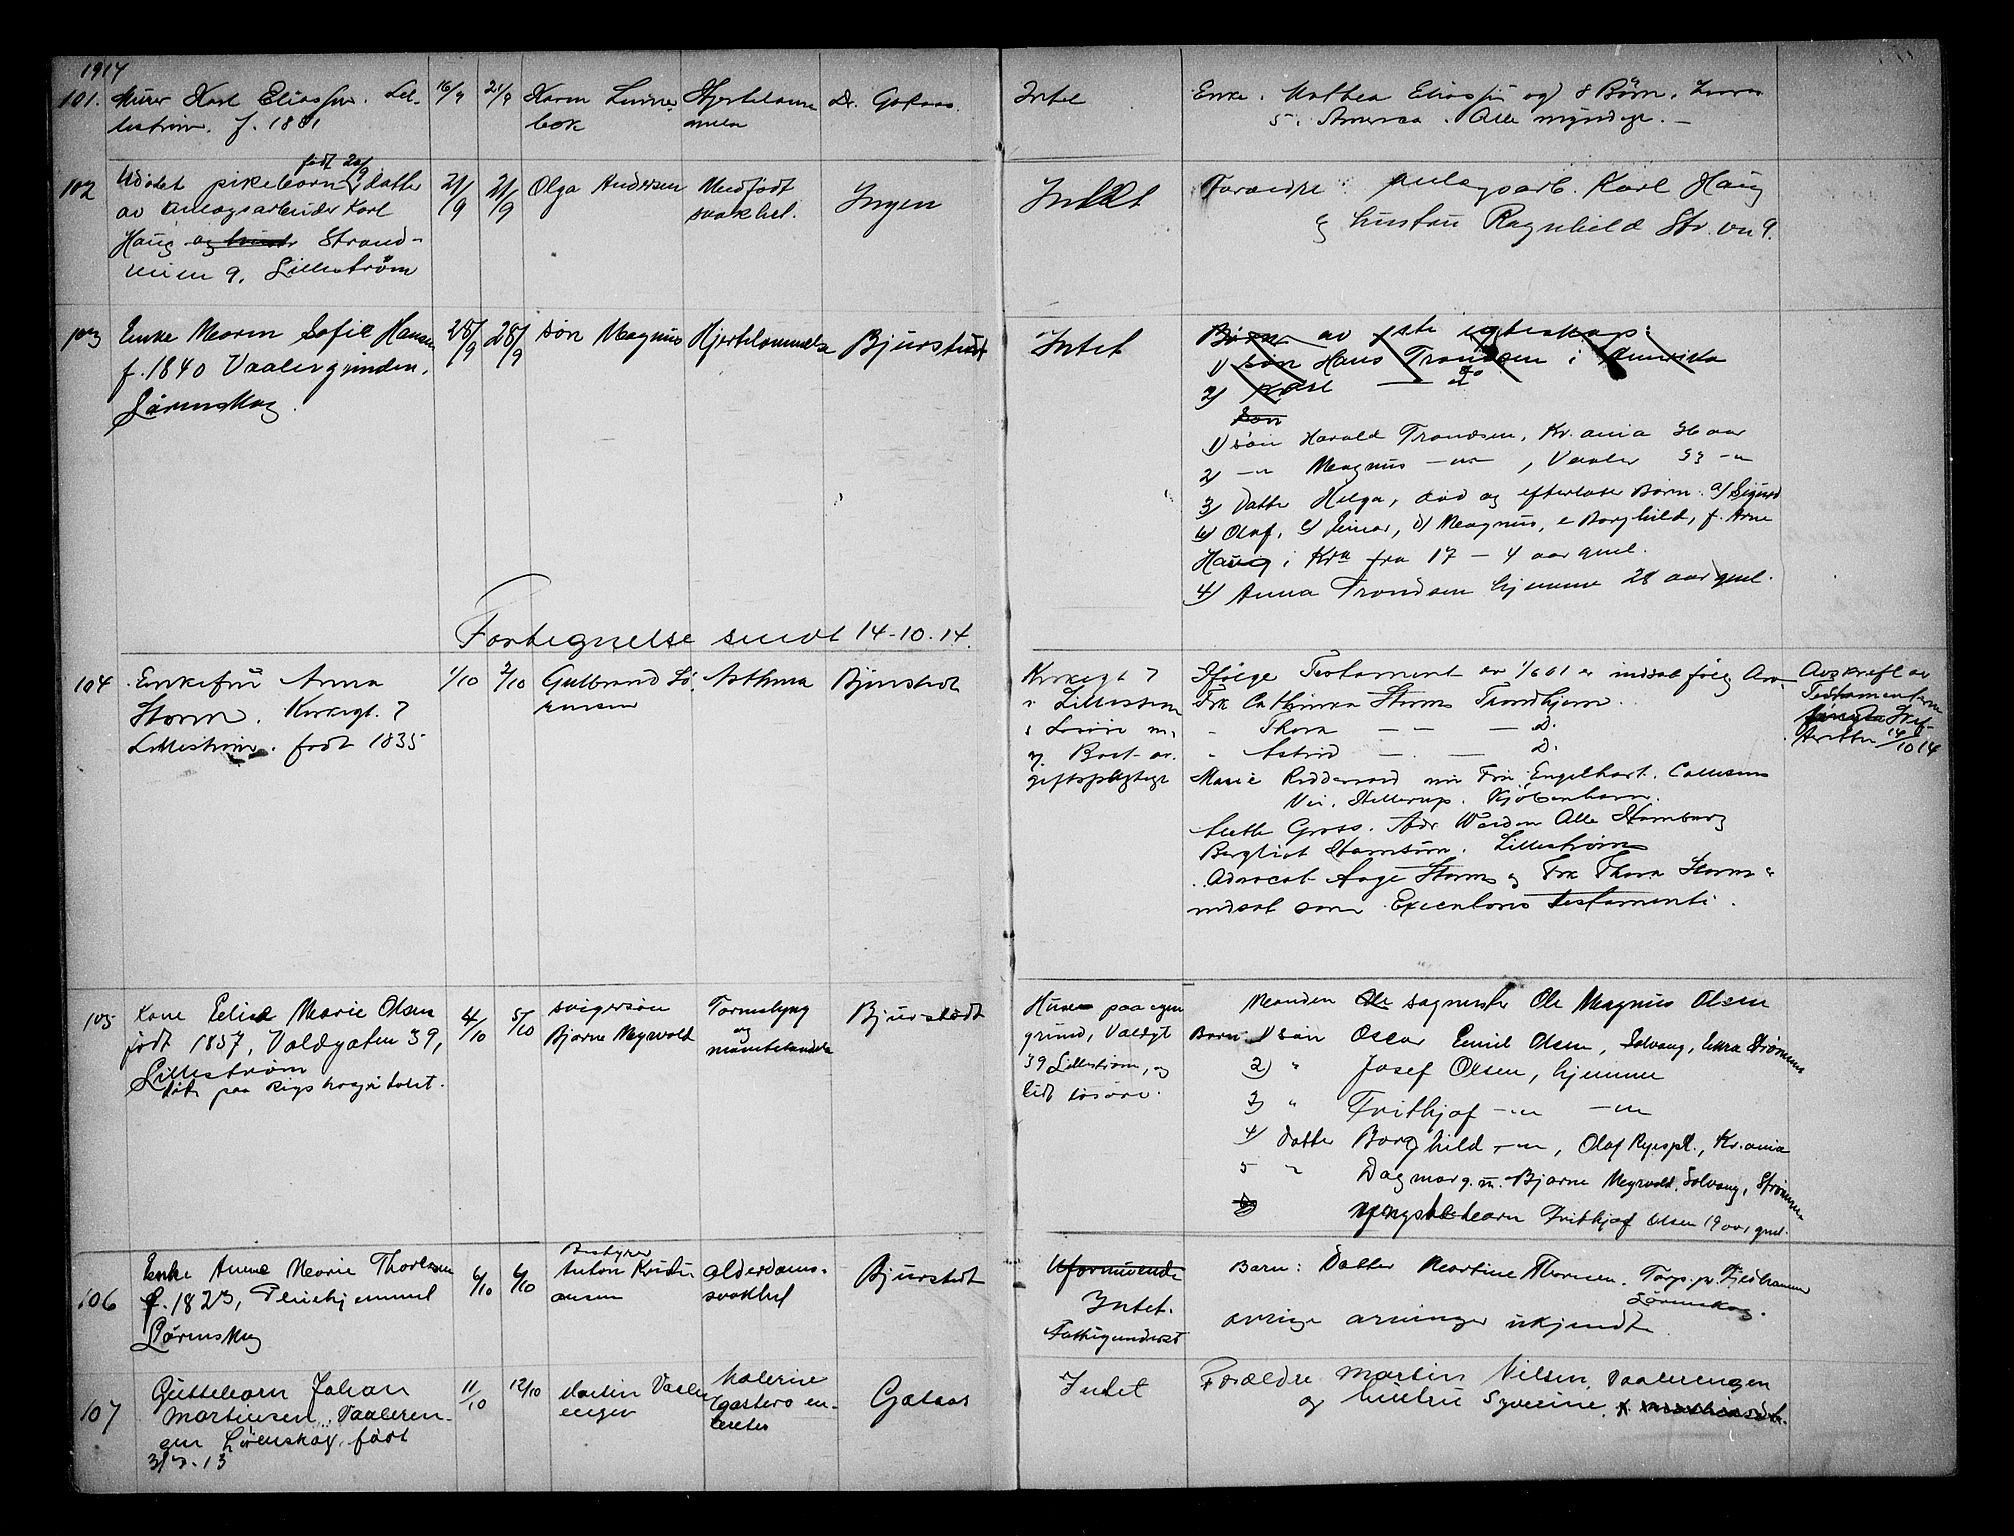 1914
101. Murer Karl Eliassen. Lil-
lestrøm. f. 1881
16/9 21/9 Karen
Hjertelam-
melse
Dr. Gotaas.
Intet
Enke. Mathea Eliassen og 8 Børn.
5 i America. Alle myndige. —
102
Udøbt pikebarn født 20/9, datter
av anlægsarbeider Karl
Haug og hustr Strand-
veien 9, Lillestrøm
21/9 21/9 Olga Andersen
Medfødt
svakhet.
Ingen
Intet
Foreldre: anlægsarb. Karl Haug
& hustru Ragnhild Str. vn 9.
103
Enke Maren Sofie Hansen
f. 1840 Vaalergrinden,
Lørenskog.
28/9 28/9 søn Magnus
Hjertelammelse
Bjurstedt
Intet
Børn av 1ste egteskap:
1) søn Hans Trondsen i Amerika
2) Karl — do
Søn
1) søn Harald Trondsen, Kr.ania 36 aar
2) —"— Magnus —"—, Vaaler 33 —"—
3) Datter Helga, død og efterlatt Børn: a) Sigurd
b) Olaf, c) Einar, d) Magnus, e Borghild, f. Arne
Haug i Kra fra 17 – 4 aar gml.
4) Anna Trondsen hjemme 28 aar gml.
Fortegnelse sendt 14-10-14.
104
Enkefru Anna
Storm. Kirkegt. 7
Lillestrøm. født 1835
1/10 2/10 Gulbrand Sø-
rensen
Asthma
Bjurstedt
Kirkegt 7
i Lillestrøm
& Løsøre m.
Boet av-
giftspligtigt
Ifølge Testament av 1/6 01 er indsat følg Arv
Frk Cathinka Storm Trondhjem.
" Thora — — — D.
" Astrid — — — D.
Marie Fru Engelhart.
Vei. Hellerup. Kjøbenhavn.
Gross. Adr Alle Hamburg
Bergliot Hamsun. Lillestrøm
Advocat Aage Storm og Frk Thora Storm er
indsat som Executores testamenti.
Avskrift av
Testamentet
Skif-
teretten 14/10 14
105
Kone Marie Olsen
født 1857, Voldgaten 39,
Lillestrøm
død paa Rigshospitalet.
4/10 5/10
svigersøn
Bjarne Myrvold
Tarmslyng
og
Bjurstedt
Huse paa egen
grund, Voldgt
39 Lillestrøm, og
lidt løsøre.
Manden Ole sagmester Ole Magnus Olsen
Barn: 1) søn Oscar Emil Olsen, Solvang, Strømmen
2) " Josef Olsen, hjemme
3) " Frithjof —"— —"—
4) datter Borghild —"—, Olaf Ryespl., Kr.ania
5 " Dagmar g.m. Bjarne Myrvold, Solvang, Strømmen
yngste barn Frithjof Olsen 19 aar gml.
106
Enke Anne Marie Thorsen
f. 1823, Pleiehjemmet
Lørenskog
6/10 6/10
Bestyrer
Anton Kristi-
ansen
Alderdoms-
svakhet
Bjurstedt
Uformuende
Intet.
Fattigunderst
Barn: Datter Martine Thorsen. Torp. pr. Fjeldhammer
Lørenskog.
øvrige arvinger ukjendte.
107
Guttebarn Johan
Martinsen, Vaaleren-
gen Lørenskog, født
3/7.13
11/10 12/10
Martin Vaaler-
engen
Gotaas
Intet
Forældre Martin Nilsen, Vaalerengen
og hustru Syverine.